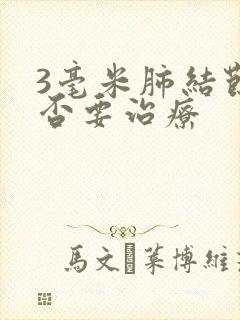 3毫米肺結
否要治療
馬文 萊博維